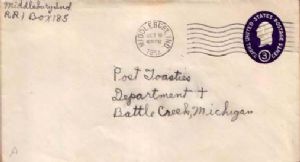 Middlebury, Ind
R.R.1 Box 185
MIDDLEBURY, IND.
1951
UNITED STATES POSTAGE
3
CENTS
Post Toasties
Department +
Battle Creek, Michigan